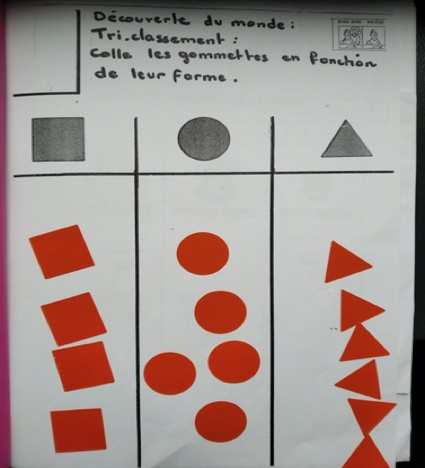 Découverte du monde :
Tri.classement :
Colle les gommettes en fonction
de leur forme .